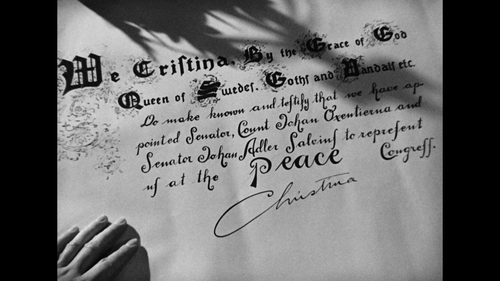 We Cristina, By the Grace of God
Queen of Sweden, Gothſ and Vandalſ etc.
Do make known and teſtify that we have ap
pointed Senator, Count Johan Oxentierna and
Senator Johan Adler Salviuſ to repreſent
uſ at the Peace Congreſſ.
Christina